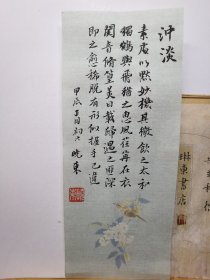 沖淡
素處以默妙機其微飲之太和
獨鶴與飛猶之惠風荏苒在衣
閱音脩篁美曰載歸遇之匪深
即之愈稀脫有形似握手已違
甲辰
書店